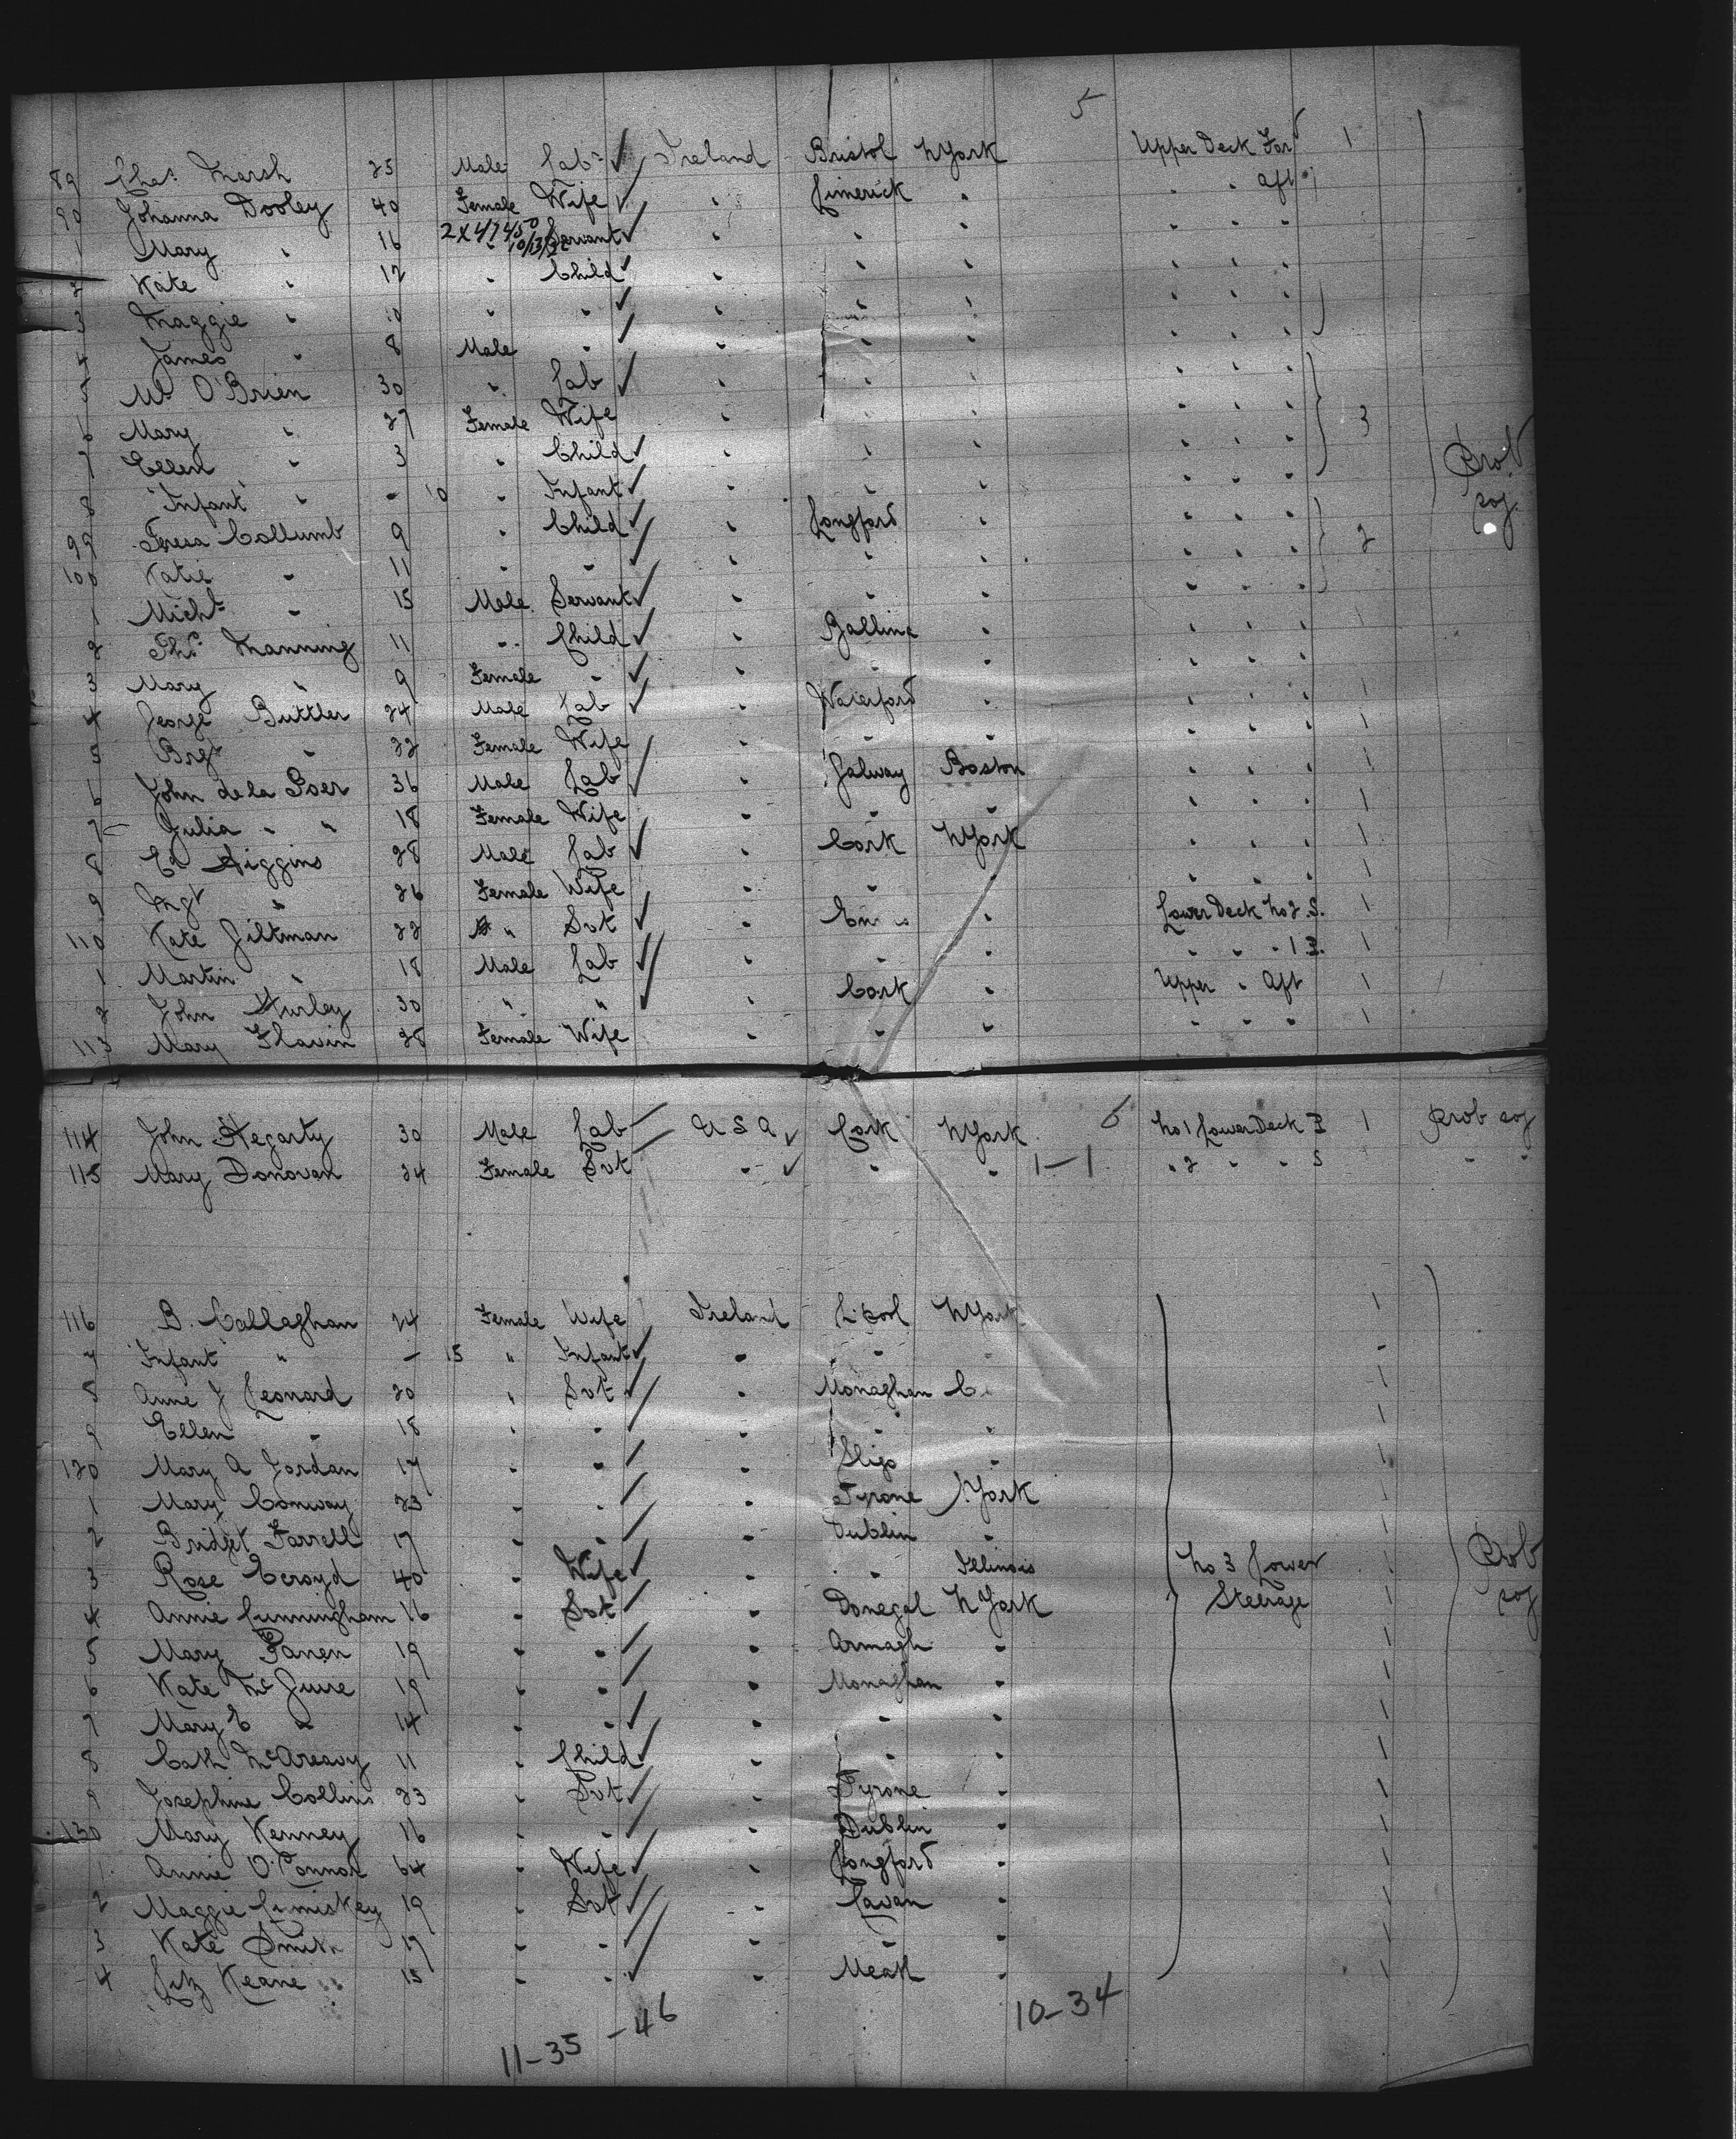 5
89 Chas. Marsh 25 Male Labr Ireland Bristol NYork Upper Deck For 1
90 Johanna Dooley 40 Female Wife " Limerick " " " aft
1 Mary " 16 2X47450 10/13/ " Servant " " " " " "
2 Kate " 12 " Child " " " " " "
3 Maggie " 10 " " " " " " " "
4 James " 8 Male " " " " " " "
5 Ml O'Brien 30 " Lab " " " " " "
6 Mary " 27 Female Wife " " " " " " 3
7 Ellen " 3 " Child " " " " " " Prob
8 "Infant" " - 10 " Infant " " " " " " soj
99 Teresa Collumb 9 " Child " Longford " " " "
100 Katie " 11 " " " " " " " " 2
1 Michl " 15 Male Servant " " " " " "
2 Thos. Manning 11 " Child " Ballina " " " " 1
3 Mary " 9 Female " " " " " " "
4 George Buttler 24 Male Lab " Waterford " " " " 1
5 Brgt " 22 Female Wife " " " " " " 1
6 John de la Poer 36 Male Lab " Galway Boston " " " 1
7 Julia " " 18 Female Wife " " " " " " 1
8 Ed Higgins 28 Male Lab " Cork NYork " " " 1
9 Mgt " 26 Female Wife " " " " " " 1
110 Kate Giltman 22 " Svt " " Lower Deck No 2 S. 1
1 Martin " 18 Male Lab " " " " " " 1 P. 1
2 John Hurley 30 " " " Cork " Upper " Aft 1
113 Mary Flavin 28 Female Wife " " " " " " 1
114 John Hegarty 30 Male Lab U S A Cork NYork No 1 Lower Deck P 1 Prob soj
115 Mary Donovan 24 Female Svt " " " 1-1 " 2 " " S " "
116 B. Callaghan 24 Female Wife Ireland L'pool NYork 1
7 "Infant" " - 15 " Infant " " " -
8 Anne J Leonard 20 " Svt " Monaghan 1
9 Ellen " 18 " " " " " 1
120 Mary A Jordan 17 " " " Sligo " 1
1 Mary Conway 23 " " " Tyrone N.York 1
2 Bridget Farrell 17 " " " Dublin " 1
3 Rose Ecroyd 40 " Wife " " Illinois No 3 Lower 1 Prob
4 Annie Cunningham 16 " Svt " Donegal NYork Steerage 1 soj
5 Mary 19 " " " Armagh " 1
6 Kate McGuire 19 " " " Monaghan " 1
7 Mary E " 14 " " " " " 1
8 Cath McAreavy 11 " Child " " " 1
9 Josephine Collins 23 " Svt " Tyrone " 1
130 Mary Kenney 16 " " " Dublin " 1
1 Annie O'Connor 64 " Wife " Longford " 1
2 Maggie Cumiskey 19 " Svt " Cavan " 1
3 Kate Smith 17 " " " " " 1
4 Liz Keane 15 " " " Meath " 1
11-35-46 10-34